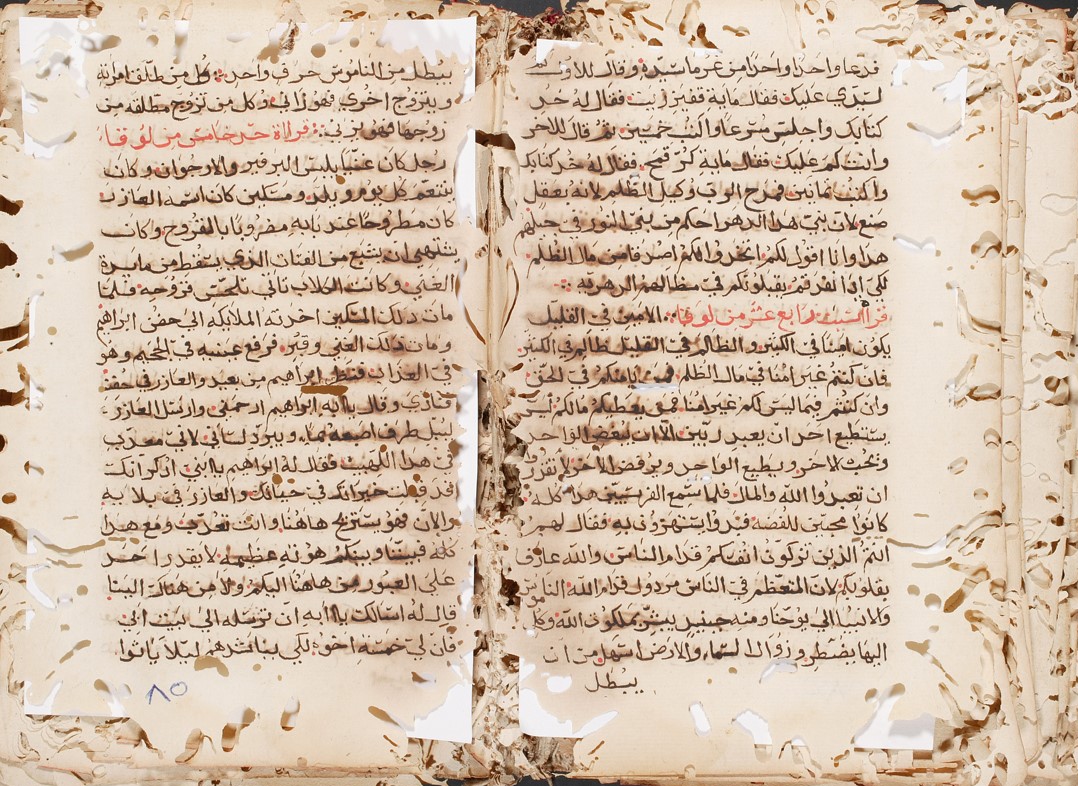 فدعا واحدا واحدا من غرما سيده وقال للاول
لسيدي عليك فقال ماية قفيز زيت فقال له خد
كتابك واجلس سرعا واكتب خمسين ثم قال للاخر
وانت كم عليك فقال ماية كر قمح فقال له خد كتابك
واكتب ثمانين فمدح الرب وكيل الظلم لانه بعقل
صنع لان بني هدا الدهر احكم من بني النور في جيلهم
هدا وانا اقول لكم اتخدوا لكم اصدقا من مال الظلم
لكي ادا نفدتم يقبلونكم في مظالهم الدهريه
قراة السبت رابع عشر من لوقا الامين في القليل
يكون امينا في الكثير والظالم في القليل ظالم في الكثير
فان كنتم غير امنا في مال الظلم فمن يامنكم في الحق
وان كنتم فيما ليس لكم غير امنا فمن يعطيكم مالكم ليس
يستطيع احد ان يعبد ربين الا ان يبغض الواحد
ويحب الاخر ويطيع الواحد ويرفض الاخر لا تقدرو
ان تعبدوا الله والمال فلما سمع الفريسيين هدا كله
كانوا محبين للفضه فبدوا يستهزون به فقال لهم
انتم الدين تزكون انفسكم قدام الناس والله عارف
بقلوبكم لان المتعظم في الناس مردول قدام الله الناموس
والانبيا الي يوحنا ومنه حينيد يبشر بملكوت الله وكل
اليها يضطر وزوال السما والارض اسهل من ان
يبطل
يبطل من الناموس حرف واحد وكل من طلق امراته
ويتزوج اخري فهو زاني وكل من تزوج مطلقه من
زوجها فهو يزني قراة حد خامس من لوقا
رجل كان غنيا يلبس البرفير والارجوان وكان
يتنعم كل يوم ويلد ومسكين كان اسمه العازر
كان مطروحا عند بابه مضروبا بالقروح وكان
يشتهي ان يشبع من الفتات الدي يسقط من مايدة
الغني وكانت الكلاب تاتي تلحس قروحه فلما
مات دلك المسكين اخدته الملايكه الي حضن ابراهيم
ومات دلك الغني وقبر فرفع عينيه في الجحيم وهو
في العداب فنظر ابراهيم من بعيد والعازر في حضنه
فنادي وقال يا ابه ابراهيم ارحمني وارسل العازر
ليبل طرف اصبعه بما ويبرد لساني لاني معدب
في هدا اللهيب فقال له ابراهيم يا ابني ادكر انك
قد قبلت خيراتك في حياتك والعازر في بلايه
والان فهو يستريح هاهنا وانت تعدب ومع هدا
كله فبيننا وبينكم هوته عظيمه لا يقدر احد
علي العبور من هاهنا اليكم ولا من هناك الينا
قال له اسالك يا ابه ان ترسله الي بيت ابي
فان لي خمسة اخوه لكي يناشدهم ليلا ياتوا
٨٥